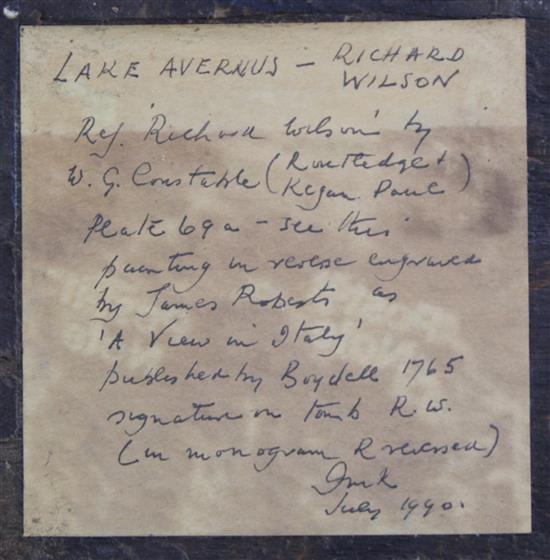 LAKE AVERNUS – RICHARD
WILSON
Ref. 'Richard Wilson' by
W. G. Constable (Routledge &
Kegan Paul)
Plate 69a – see this
painting in reverse engraved
by James Roberts as
'A View in Italy'
published by Boydell 1765
signature on tomb R.W.
(in monogram R reversed)
July 1990.